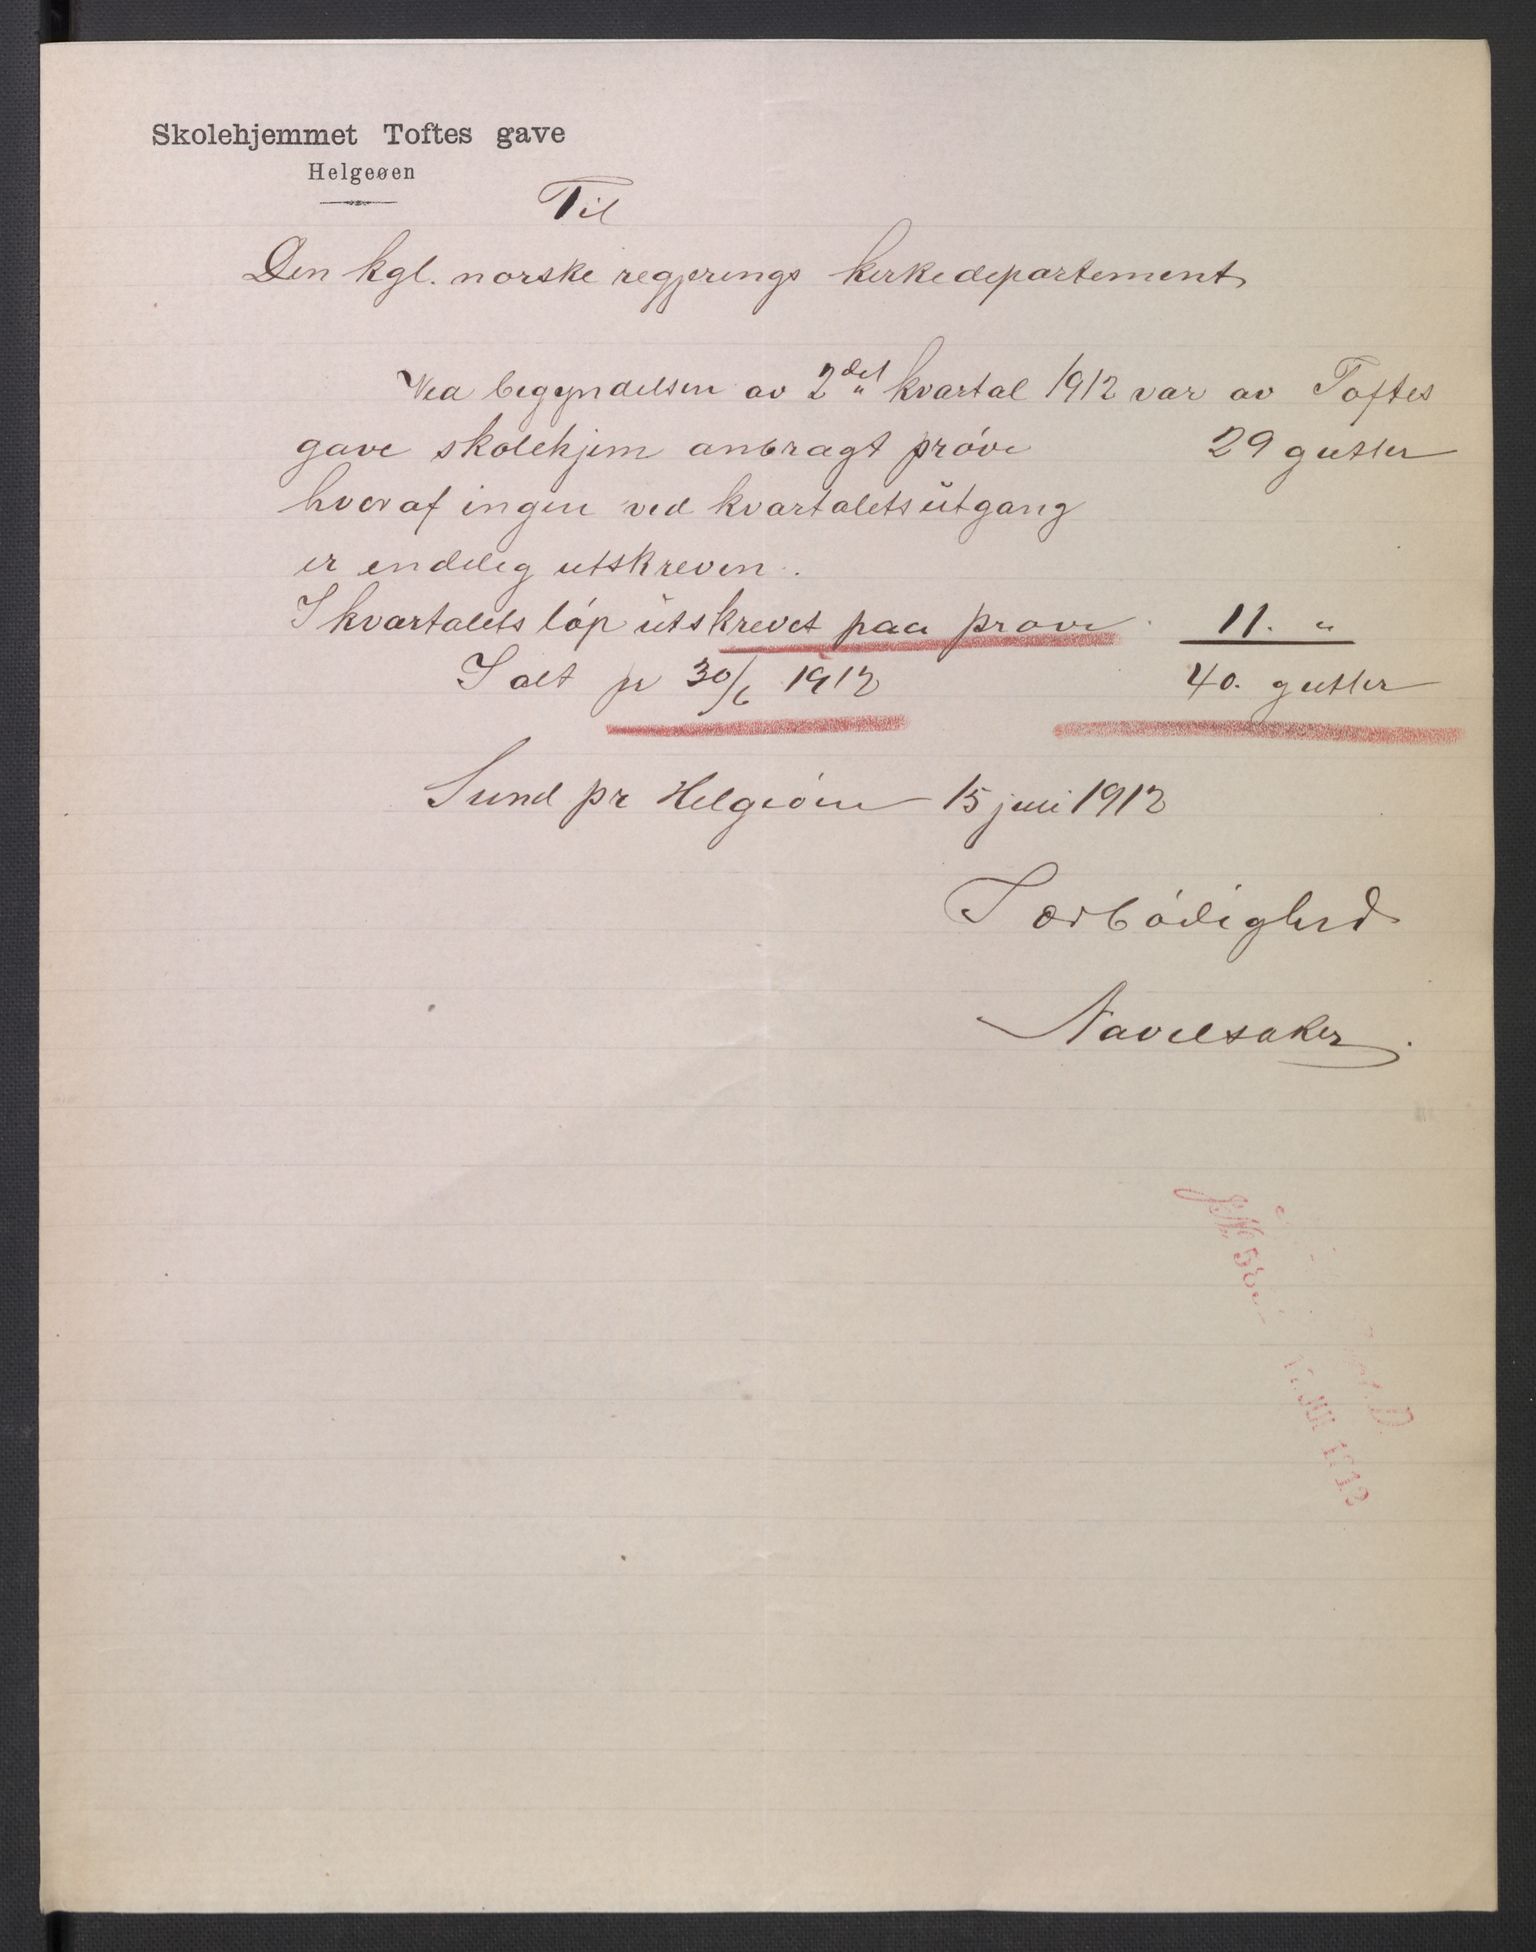 Skolehjemmet Toftes gave
Helgeøen
Til
Den kgl. norske regjerings kirkedepartement
Ved begyndelsen av 2det kvartal 1912 var av Toftes
gave skolehjem anbragt prøve 29 gutter
hvoraf ingen ved kvartalets utgang
er endelig utskreven.
I kvartalets løp utskrevet paa prøve 11. "
I alt pr 30/6 1912 40. gutter
Sund pr Helgeøen 15 juli 1912
Ærbødighed
Navelsaker.
JNo 58
JUL 1912